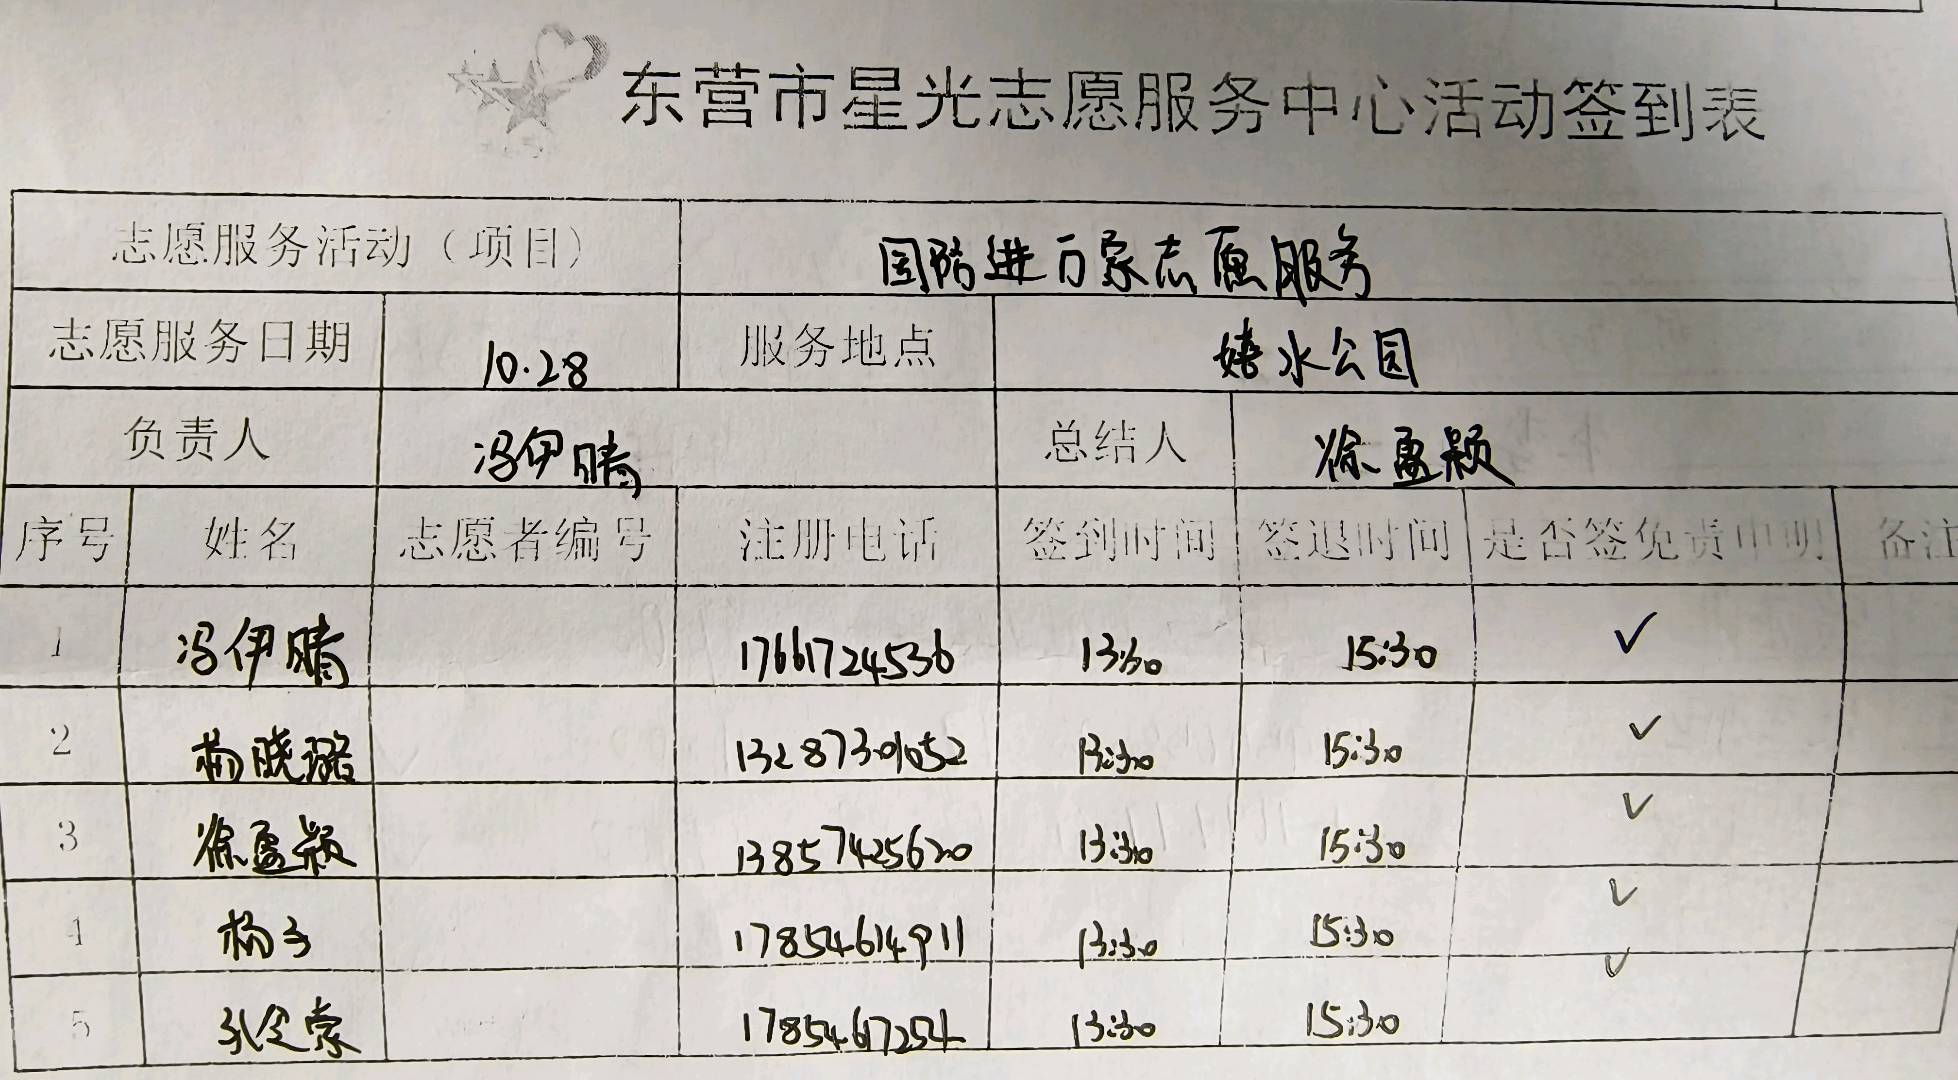 东营市星光志愿服务中心活动签到表
志愿服务活动（项目） 国防进万家志愿服务
志愿服务日期 10.28 服务地点 嬉水公园
负责人 冯伊晴 总结人 徐盈颖
序号 姓名 志愿者编号 注册电话 签到时间 签退时间 是否签免责申明 备注
1 冯伊晴 17661724536 13:30 15:30 ✓
2 杨晓璐 13287301652 13:30 15:30 ✓
3 徐盈颖 13857425620 13:30 15:30 ✓
4 杨子 17854614911 13:30 15:30 ✓
5 13:30 15:30 ✓